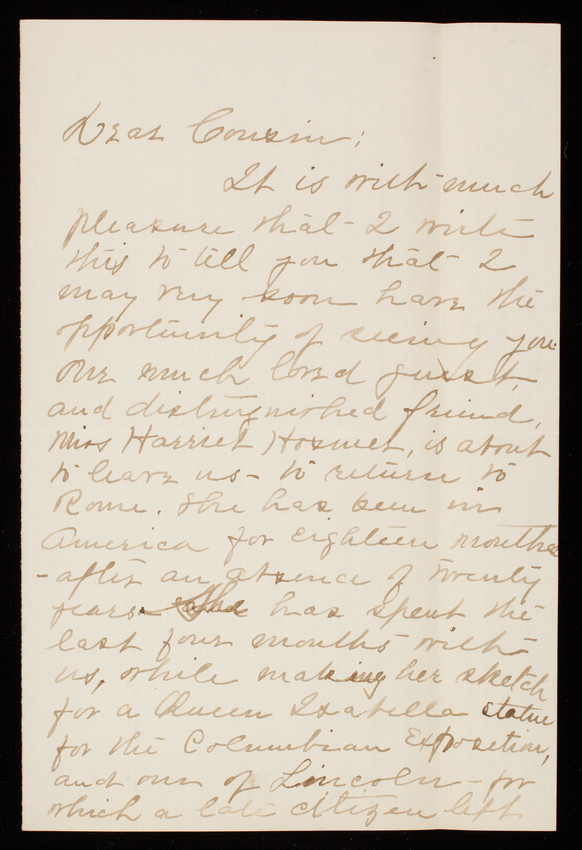 Dear Cousin:
It is with much
pleasure that I write
this to tell you that I
may very soon have the
opportunity of seeing you.
Our much loved guest,
and distinguished friend,
Miss Harriet Hosmer, is about
to leave us - to return to
Rome. She has been in
America for eighteen months
- after an absence of twenty
years. She has spent the
last four months with
us, while making her sketch
for a Queen Isabella statue
for the Columbian Exposition,
and one of Lincoln - for
which a late citizen left